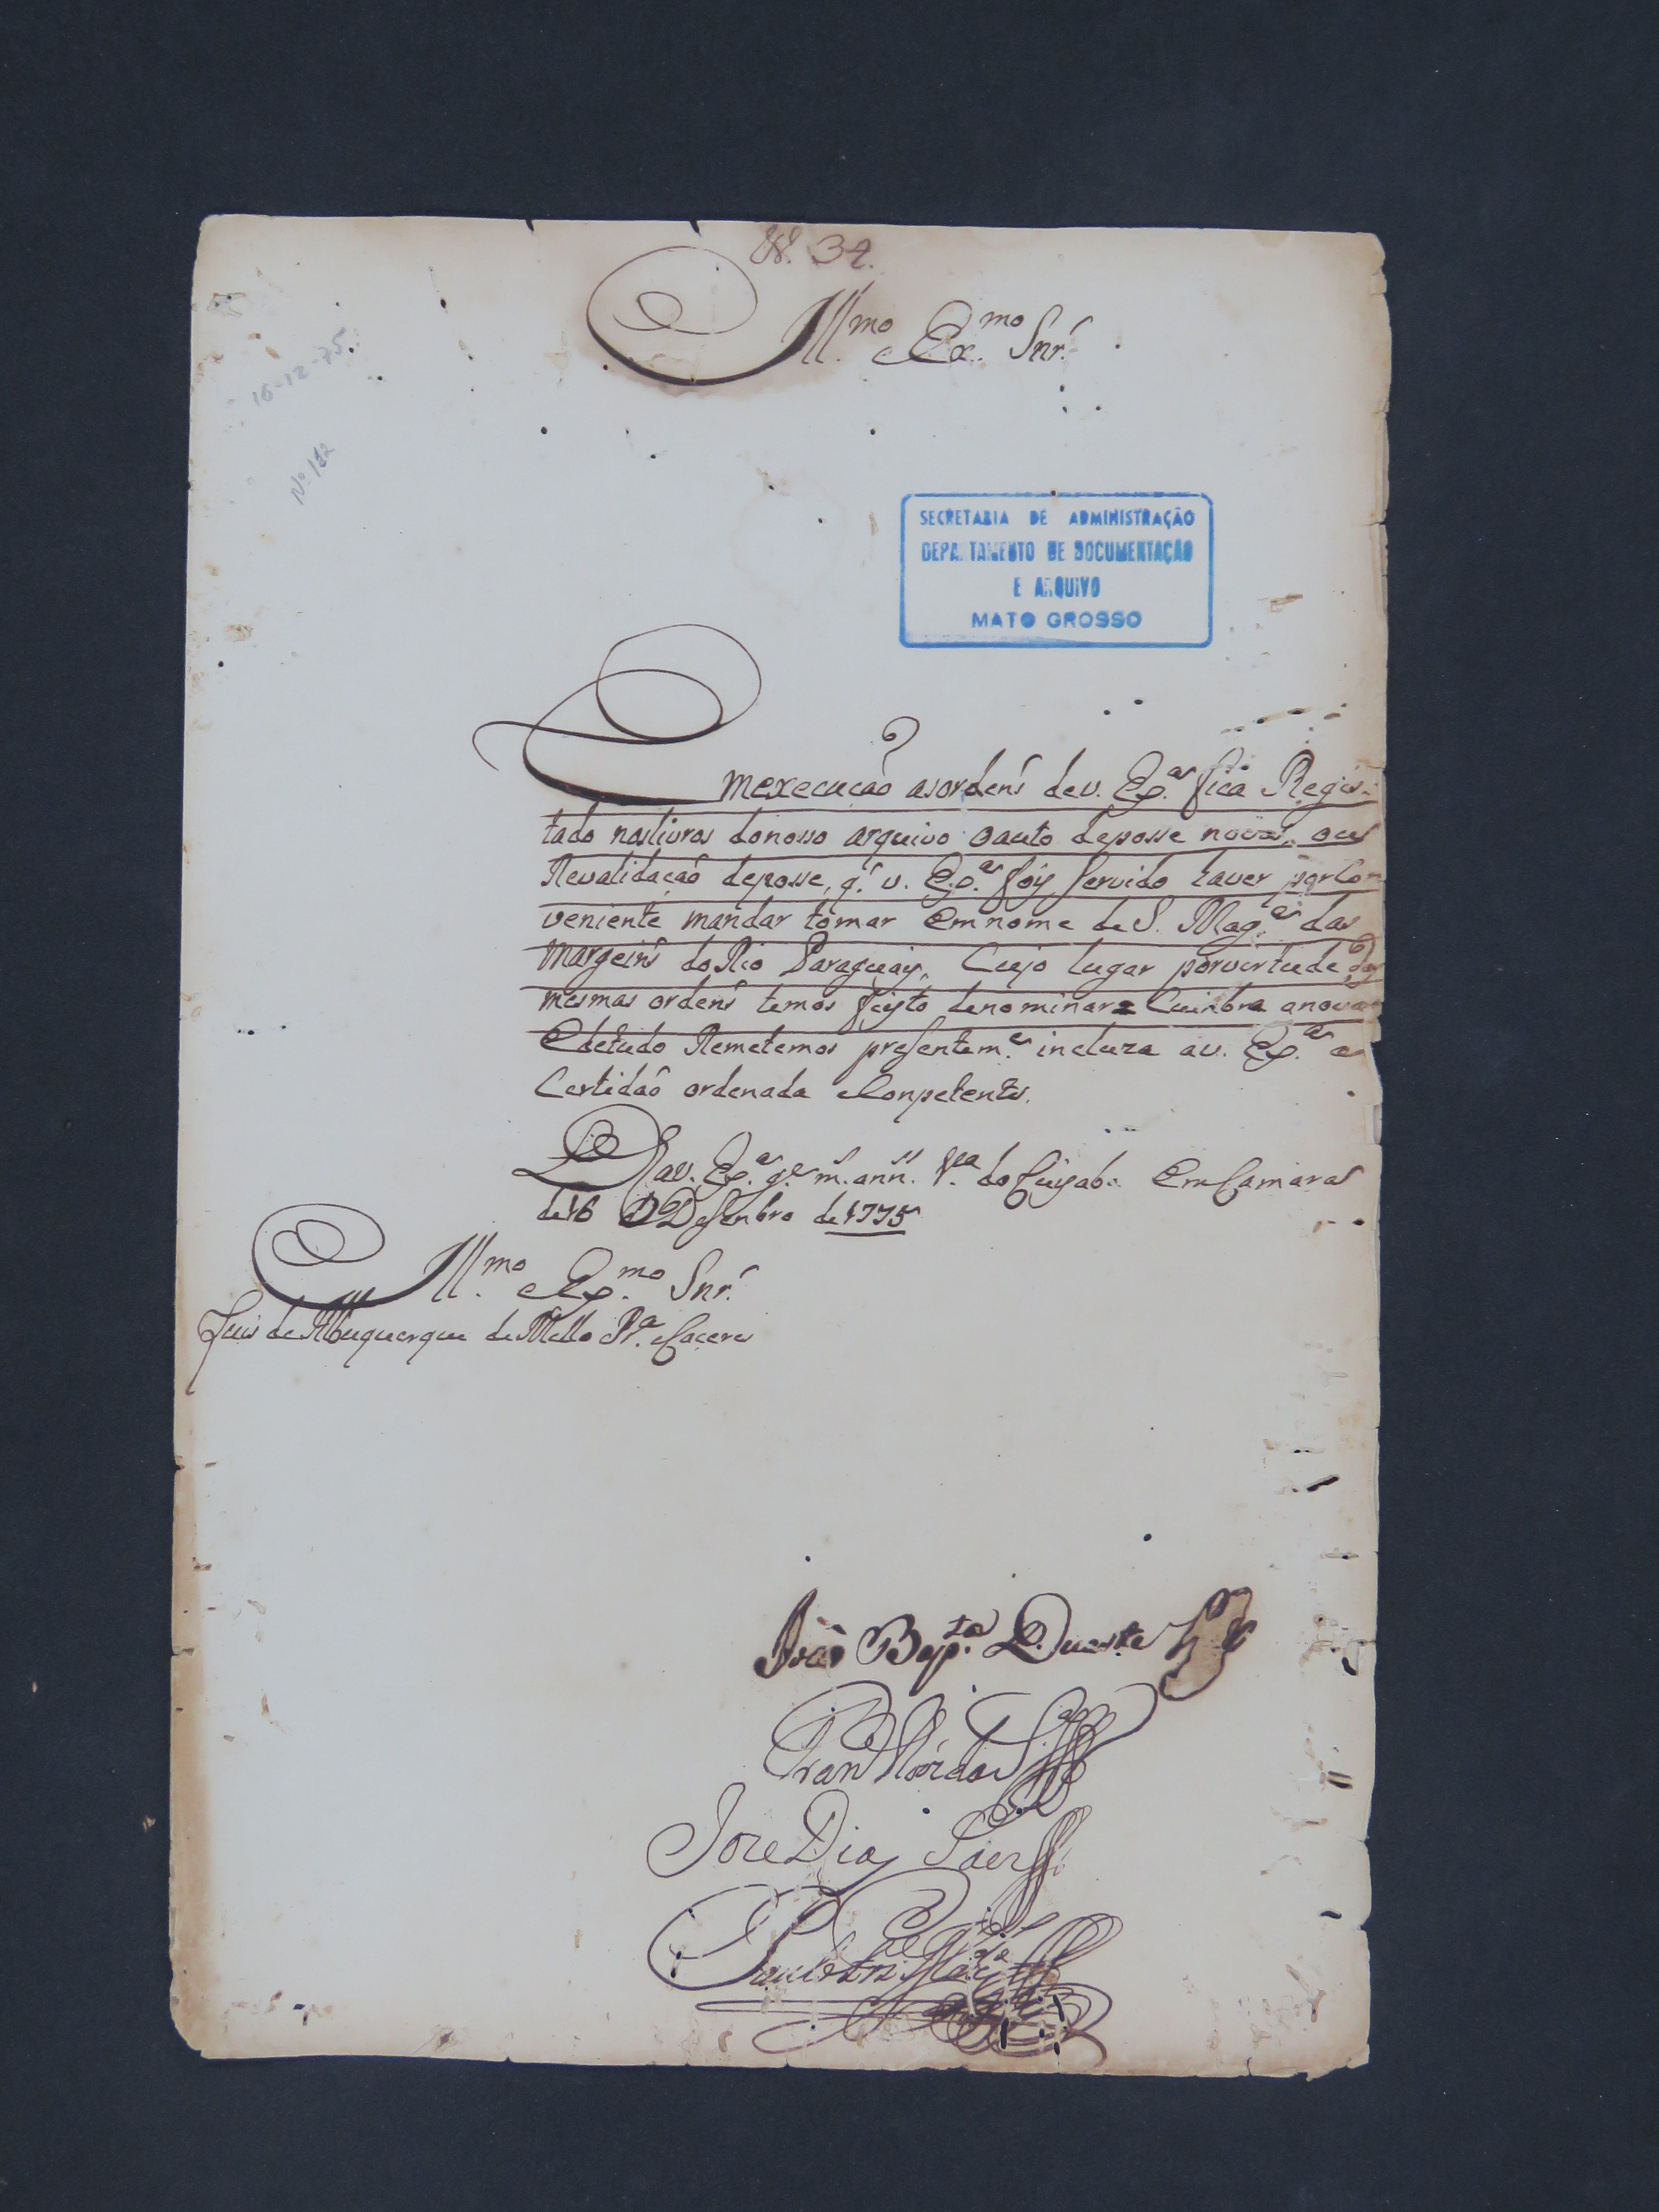 N. 34.
Ill.mo e Ex.mo Snr.
16-12-75.
Nº 132
SECRETARIA DE ADMINISTRAÇÃO
DEPARTAMENTO DE DOCUMENTAÇÃO
E ARQUIVO
MATO GROSSO
Em execuçaõ as ordens de v. Ex.a fica Regis-
tado nos livros do nosso arquivo o auto de posse nova, ou
Revalidaçaõ de posse, q. v. Ex.a foy servido haver por Con
veniente mandar tomar em nome de S. Mag.e das
margeins do Rio Paraguay, Cujo lugar por vertude das
mesmas ordens temos feyto denominar = Cuinbra a nova
E de tudo Remetemos prezentem.e incluza a v. Ex.a a
Certidaõ ordenada e Conpetente.
D.s a v. Ex.a g.e m. ann. V.a do Cuyabá Em Camara
de 16 de Dezenbro de 1775
Ill.mo e Ex.mo Snr.
Luis de Albuquerque de Mello Pr.a e Caceres
João Bap.ta Duarte
Fran
Joze Dias Paes